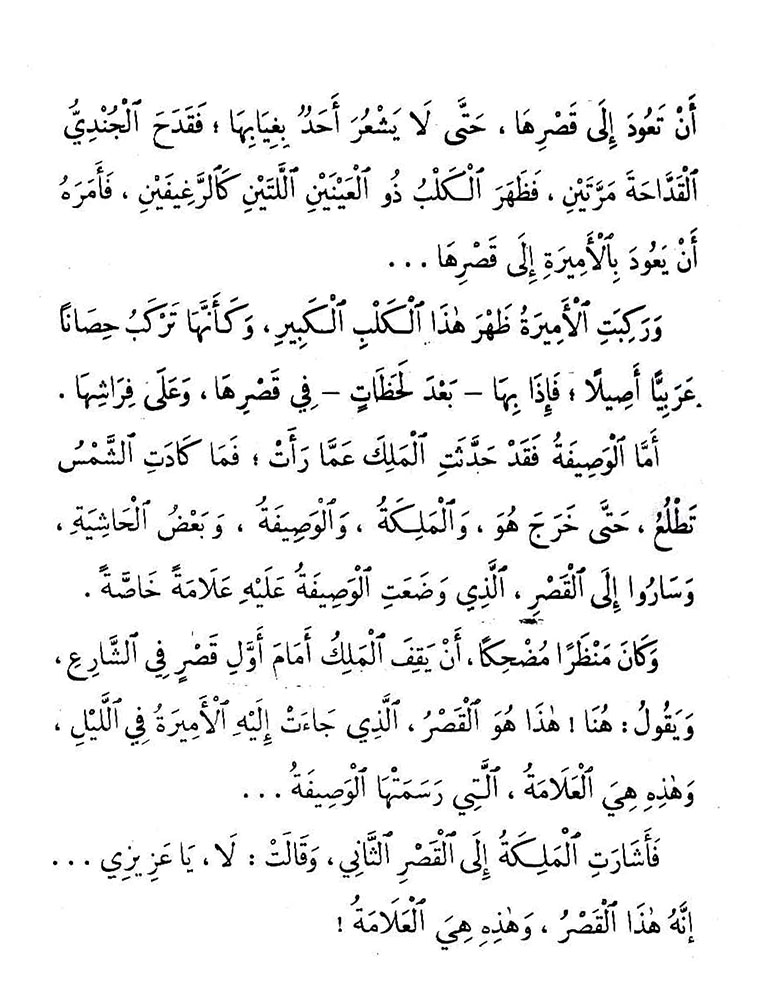 أَنْ تَعُودَ إِلَى قَصْرِهَا ، حَتَّى لَا يَشْعُرَ أَحَدٌ بِغِيَابِهَا ؛ فَقَدَحَ ٱلْجُنْدِيُّ
ٱلْقَدَّاحَةَ مَرَّتَيْنِ ، فَظَهَرَ ٱلْكَلْبُ ذُو ٱلْعَيْنَيْنِ ٱللَّتَيْنِ كَٱلرَّغِيفَيْنِ ، فَأَمَرَهُ
أَنْ يَعُودَ بِٱلْأَمِيرَةِ إِلَى قَصْرِهَا ...
وَرَكِبَتِ ٱلْأَمِيرَةُ ظَهْرَ هٰذَا ٱلْكَلْبِ ٱلْكَبِيرِ ، وَكَأَنَّهَا تَرْكَبُ حِصَانًا
عَرَبِيًّا أَصِيلًا ؛ فَإِذَا بِهَا – بَعْدَ لَحَظَاتٍ – فِي قَصْرِهَا ، وَعَلَى فِرَاشِهَا .
أَمَّا ٱلْوَصِيفَةُ فَقَدْ حَدَّثَتِ ٱلْمَلِكَ عَمَّا رَأَتْ ؛ فَمَا كَادَتِ ٱلشَّمْسُ
تَطْلُعُ ، حَتَّى خَرَجَ هُوَ ، وَٱلْمَلِكَةُ ، وَٱلْوَصِيفَةُ ، وَبَعْضُ ٱلْحَاشِيَةِ ،
وَسَارُوا إِلَى ٱلْقَصْرِ ، ٱلَّذِي وَضَعَتِ ٱلْوَصِيفَةُ عَلَيْهِ عَلَامَةً خَاصَّةً .
وَكَانَ مَنْظَرًا مُضْحِكًا ، أَنْ يَقِفَ ٱلْمَلِكُ أَمَامَ أَوَّلِ قَصْرٍ فِي ٱلشَّارِعِ ،
وَيَقُولُ : هُنَا ! هٰذَا هُوَ ٱلْقَصْرُ ، ٱلَّذِي جَاءَتْ إِلَيْهِ ٱلْأَمِيرَةُ فِي ٱللَّيْلِ ،
وَهٰذِهِ هِيَ ٱلْعَلَامَةُ ، ٱلَّتِي رَسَمَتْهَا ٱلْوَصِيفَةُ ...
فَأَشَارَتِ ٱلْمَلِكَةُ إِلَى ٱلْقَصْرِ ٱلثَّانِي ، وَقَالَتْ : لَا ، يَا عَزِيزِي ...
إِنَّهُ هٰذَا ٱلْقَصْرُ ، وَهٰذِهِ هِيَ ٱلْعَلَامَةُ !